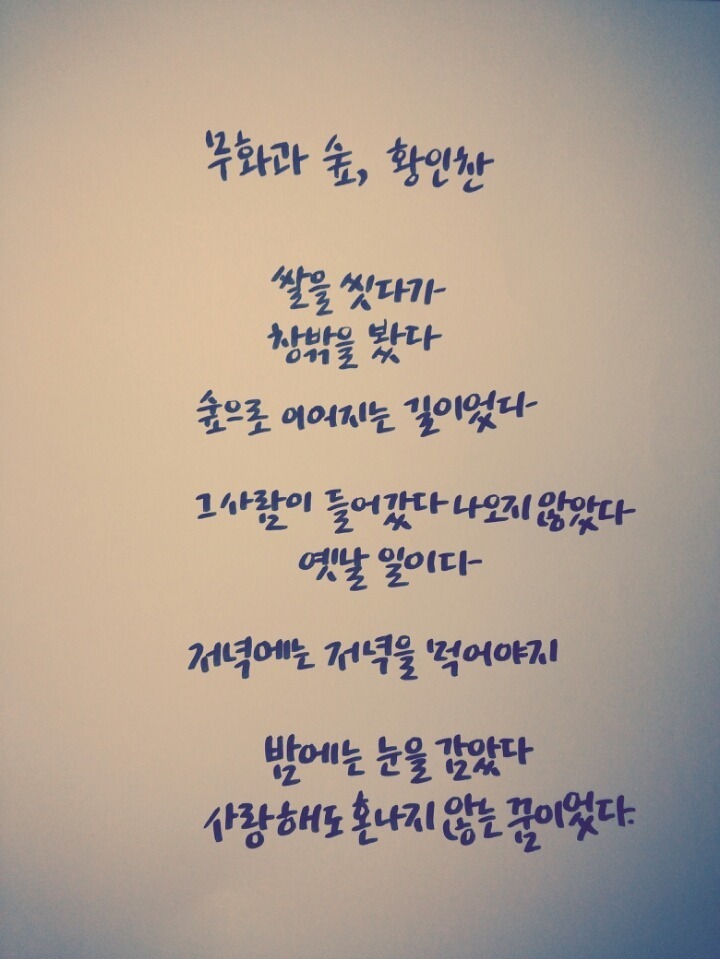 무화과 숲, 황인찬
쌀을 씻다가
창밖을 봤다
숲으로 이어지는 길이었다
그 사람이 들어갔다 나오지 않았다
옛날 일이다
저녁에는 저녁을 먹어야지
밤에는 눈을 감았다
사랑해도 혼나지 않는 꿈이었다.